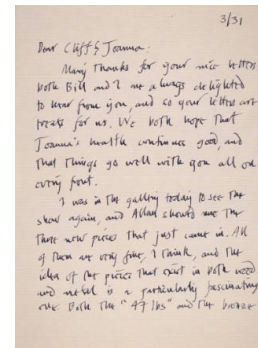 3/31
Dear Cliff & Joanna:
Many thanks for your nice letters
both Bill and I are always delighted
to hear from you, and so your letters are
treats for us. We both hope that
Joanna's health continues good, and
that things go well with you all on
every front.
I was in the gallery today to see the
show again, and Allan showed me the
three new pieces that just came in. All
of them are very fine, I think, and the
idea of the pieces that exist in both wood
and metal is a particularly fascinating
one. Both the "47 lbs" and the bronze